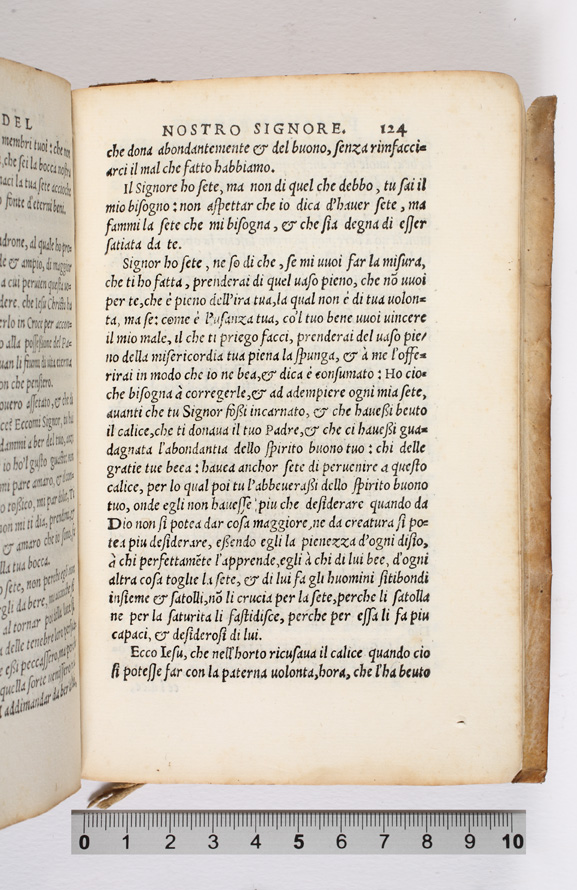 DEL
membri tuoi : che non
, che sei la bocca nostra
naci la tua sete accioche
o fonte d'eterni beni.
adrone, al quale ho pro-
le & ampio, di maggior
a cui peruien questa so-
dere. che Iesu Christo ha
erlo in Croce per
o alla possessione del Pa-
uan li fiumi di vita eterna
on che pensiero.
ouero assetato, & che
Eccomi Signore, ti
dammi a ber del tuo,
io ho'l gusto guasto:
mi pare amaro, &
o tossico, mi par
non mi ti dia, prendine,
& amaro che
lla tua bocca.
sete, non perche
egli da bere, ma
al tornar
delle tenebre
e essi peccassero, ma
quella sorte venissero
addimandar da ber
NOSTRO SIGNORE. 124
che dona abondantemente & del buono, senza rimfacci=
arci il mal che fatto habbiamo.
Il Signore ho sete, ma non di quel che debbo, tu sai il
mio bisogno : non aspettar che io dica d'hauer sete, ma
fammi la sete che mi bisogna, & che sia degna di esser
satiata da te.
Signor ho sete, ne so di che, se mi vuoi far la misura,
che ti ho fatta, prenderai di quel vaso pieno, che nõ vuoi
per te, che è pieno dell'ira tua, la qual non è di tua volon=
ta, ma se: come è l'usanza tua, co'l tuo bene vuoi vincere
il mio male, il che ti priego facci, prenderai del vaso pie/
no della misericordia tua piena la spunga, & à me l'offe=
rirai in modo che io ne bea, & dica è consumato : Ho cio=
che bisogna à corregerle, & ad adempiere ogni mia sete,
auanti che tu Signor fossi incarnato, & che hauessi beuto
il calice, che ti donaua il tuo Padre, & che ci hauessi gua=
dagnata l'abondantia dello spirito buono tuo : chi delle
gratie tue beea : hauea anchor sete di peruenire a questo
calice, per lo qual poi tu l'abbeuerassi dello spirito buono
tuo, onde egli non hauesse piu che desiderare quando da
Dio non si potea dar cosa maggiore, ne da creatura si po=
tea piu desiderare, essendo egli la pienezza d'ogni disio,
à chi perfettamẽte l'apprende, egli à chi di lui bee, d'ogni
altra cosa toglie la sete, & di lui fa gli huomini sitibondi
insieme & satolli, nõ li crucia per la sete, perche li satolla
ne per la saturita li fastidisce, perche per essa li fa piu
capaci, & desiderosi di lui.
Ecco Iesu, che nell'horto ricusaua il calice quando cio
si potesse far con la paterna volonta, hora, che l'ha beuto
0 1 2 3 4 5 6 7 8 9 10